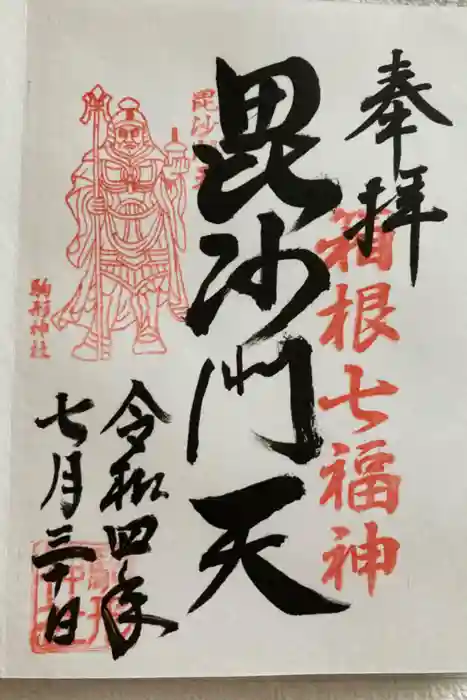 奉拝
箱根七福神
毘沙門天
毘沙門天
駒形神社
令和四年
七月三十日
駒形神社